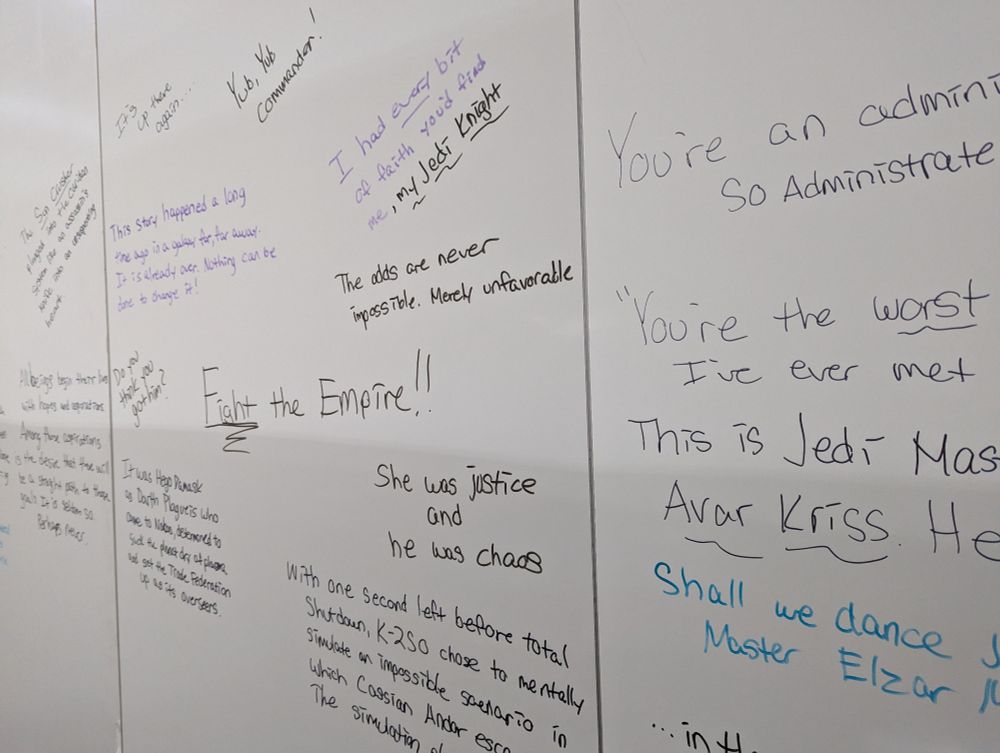 It's
up there
again....
Yub, Yub
commander!
I had every bit
of faith you'd find
me, my Jedi Knight
The Sun Crusher
plunged into the
heart
This story happened a long
time ago in a galaxy far, far away.
It is already over. Nothing can be
done to change it!
The odds are never
impossible. Merely unfavorable
All beings begin their lives
with hopes and aspirations.
Among those aspirations
is the desire that there will
be a straight path to those
goals. It is seldom so.
Perhaps never.
Do you
think you
got him?
Fight the Empire!!
It was Hego Damask
as Darth Plagueis who
came to Naboo, determined to
suck the planet dry of plasma
and set the Trade Federation
up as its overseers.
She was justice
and
he was chaos
With one second left before total
Shutdown, K-2SO chose to mentally
simulate an impossible scenario in
which Cassian Andor esc
The simulation
You're an admini
So Administrate
"You're the worst
I've ever met
This is Jedi Mas
Avar Kriss. He
Shall we dance
Master Elzar M
...in th